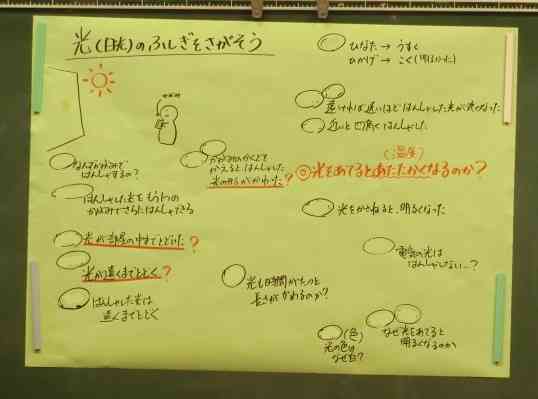 光(日光)のふしぎをさがそう
ひなた→うすく
ひかげ→こく(明るかった)
近いと明るくはんしゃした
なんでかがみで
はんしゃするの?
はんしゃした光をもう1つの
かがみでさらにはんしゃさせる
かがみのかくどを
かえるとはんしゃした
光の形がかわった?
(温度)
◎光をあてるとあたたかくなるのか?
光が部屋の中までとどいた?
光が遠くまでとどく?
はんしゃした光は
遠くまでとどく
光をかさねると、明るくなった
電気の光は
はんしゃしない…?
光も時間がたつと
長さがかわるのか?
(色)
光の色は
なぜ白?
なぜ光をあてると
明るくなるのか